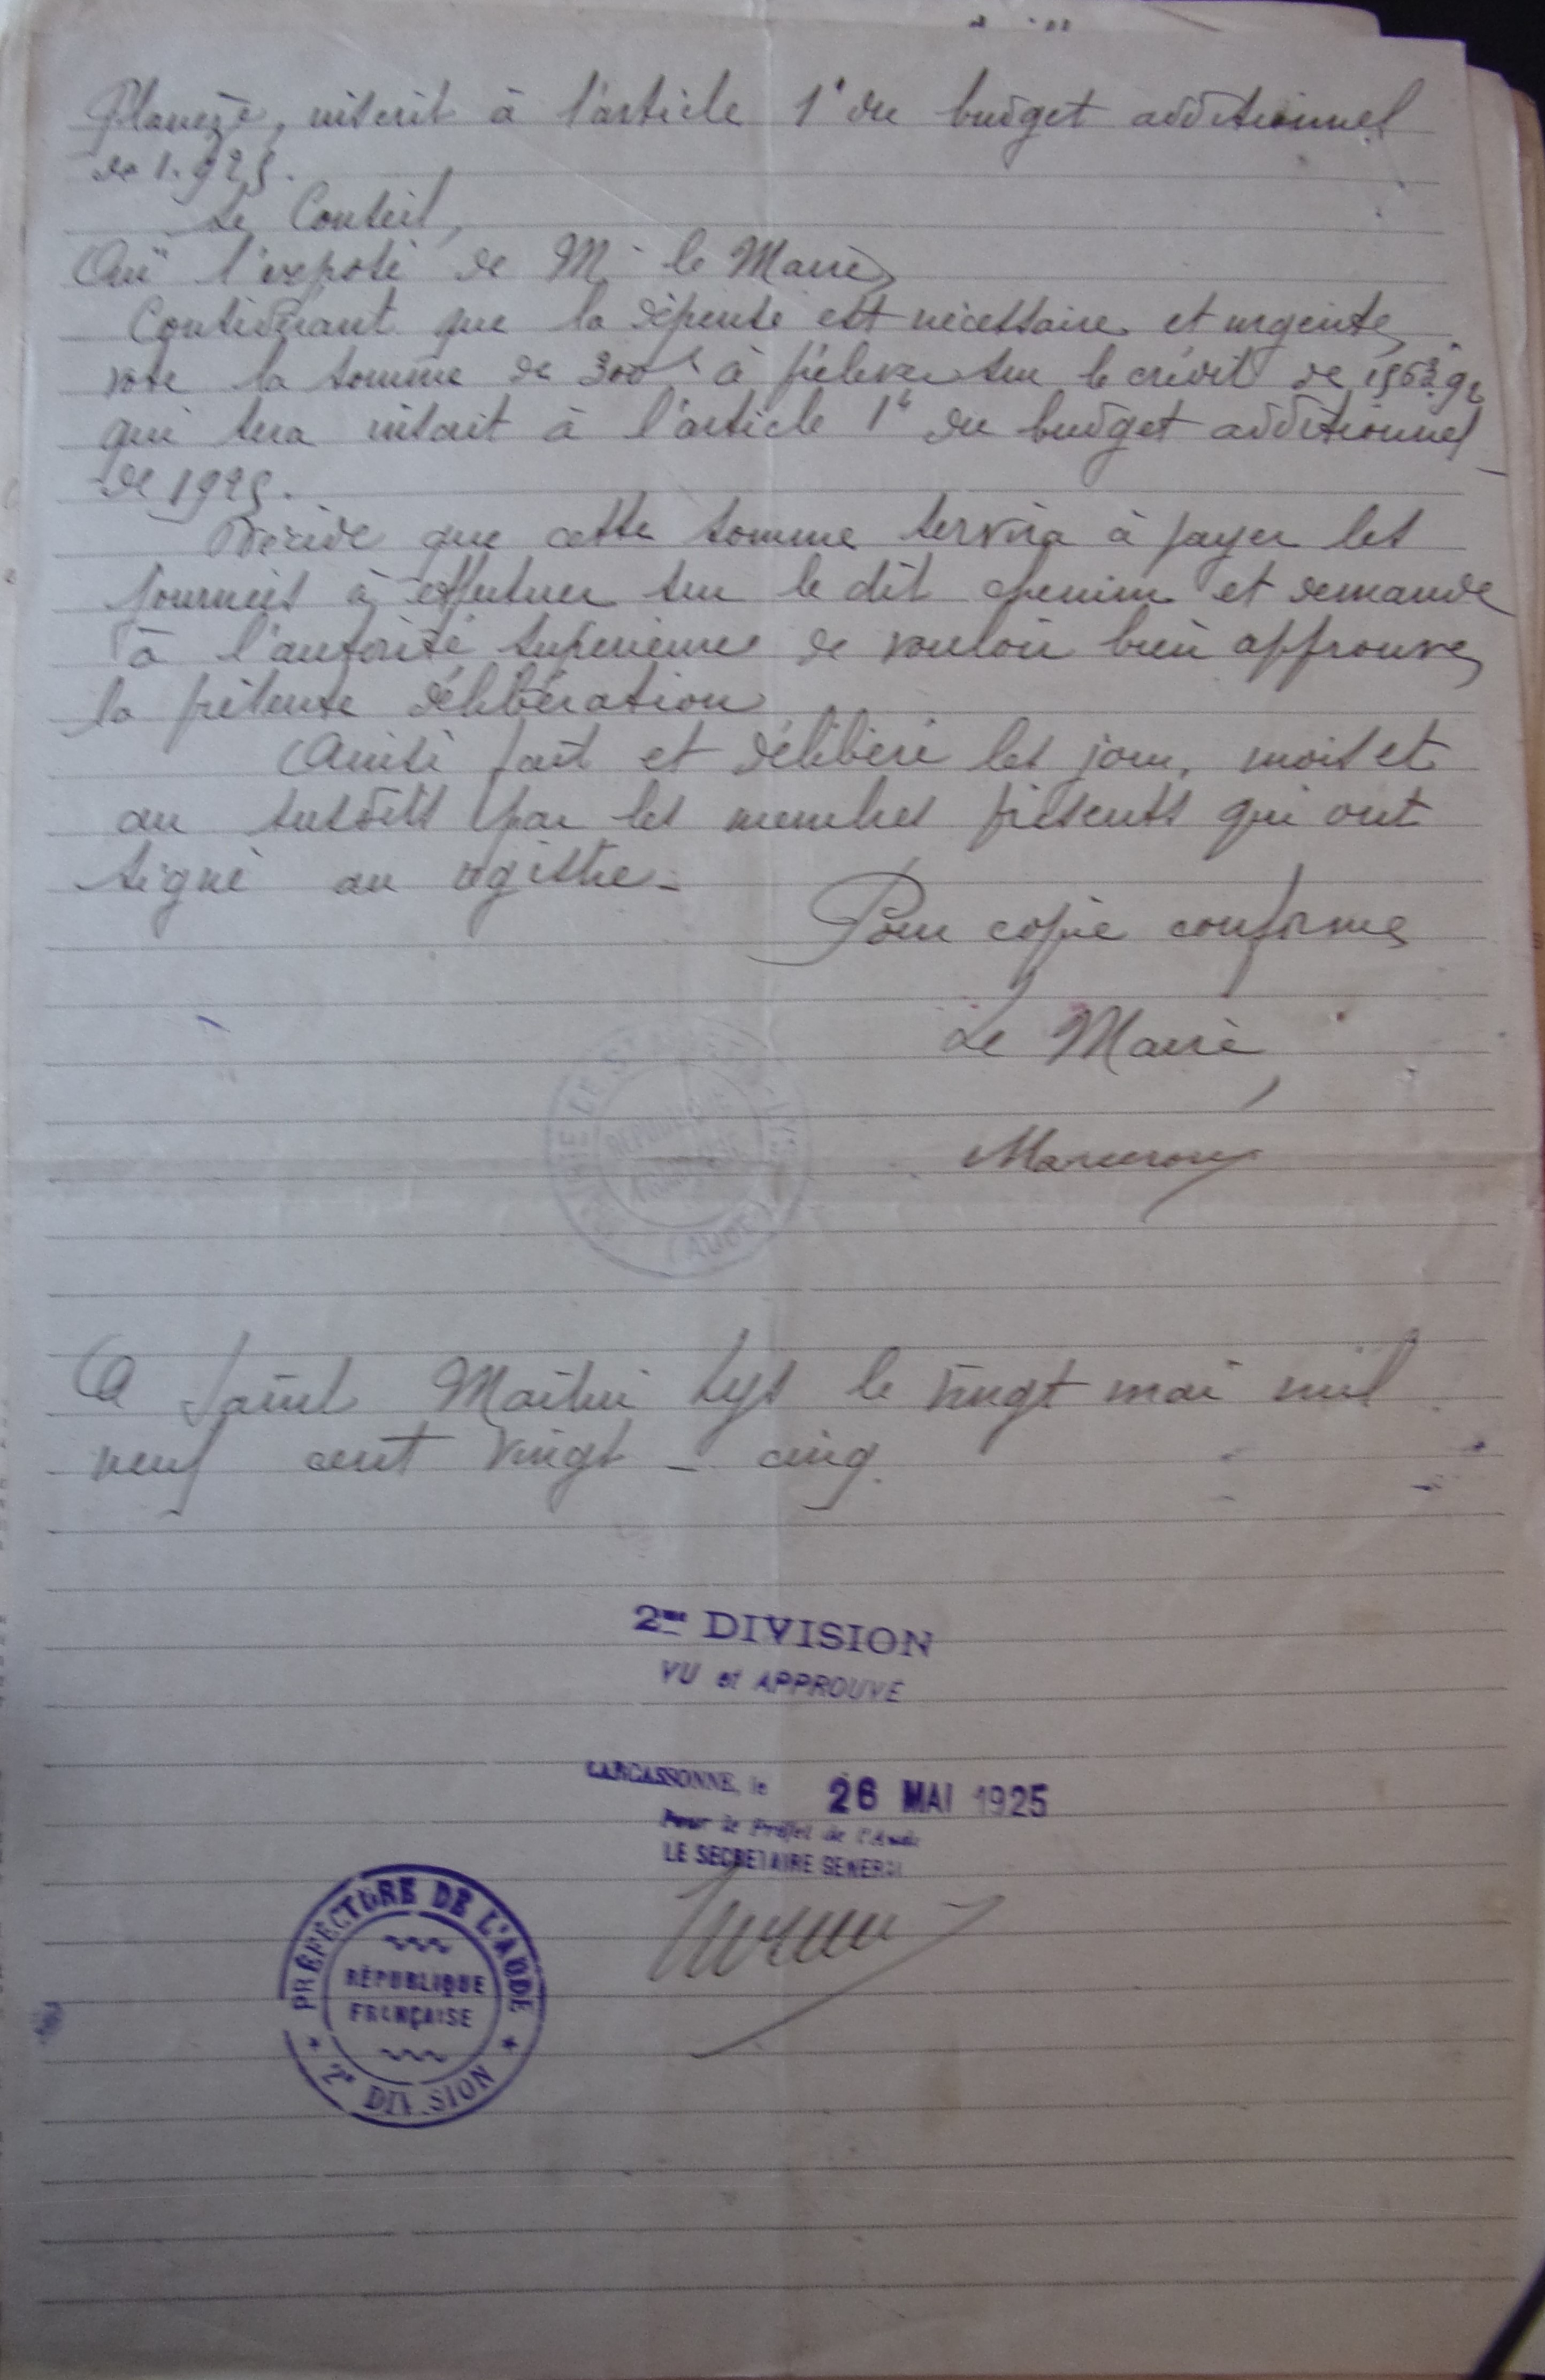 Planèze, inscrit à l'article 1er du budget additionnel
de 1.925.
Le Conseil,
Ouï l'exposé de Mr le Maire,
Considérant que la dépense est nécessaire et urgente,
vote la somme de 300f à prélever sur le crédit de 1563f.92
qui sera inscrit à l'article 1er du budget additionnel
de 1925.
Décide que cette somme servira à payer les
journées à effectuer sur le dit chemin et demande
à l'autorité supérieure de vouloir bien approuver
la présente délibération
Ainsi fait et délibéré les jour, mois et
an susdits par les membres présents qui ont
signé au registre.
Pour copie conforme
Le Maire,
MAIRIE DE ST
RÉPUBLIQUE
FRANÇAISE
(AUDE)
A Saint Martin Lys le vingt mai mil
neuf cent vingt - cinq.
2me DIVISION
VU et APPROUVÉ
CARCASSONNE, le 26 MAI 1925
Pour le Préfet de l'Aude
LE SECRETAIRE GENERAL
PRÉFECTURE DE L'AUDE
RÉPUBLIQUE
FRANÇAISE
2e DIVISION